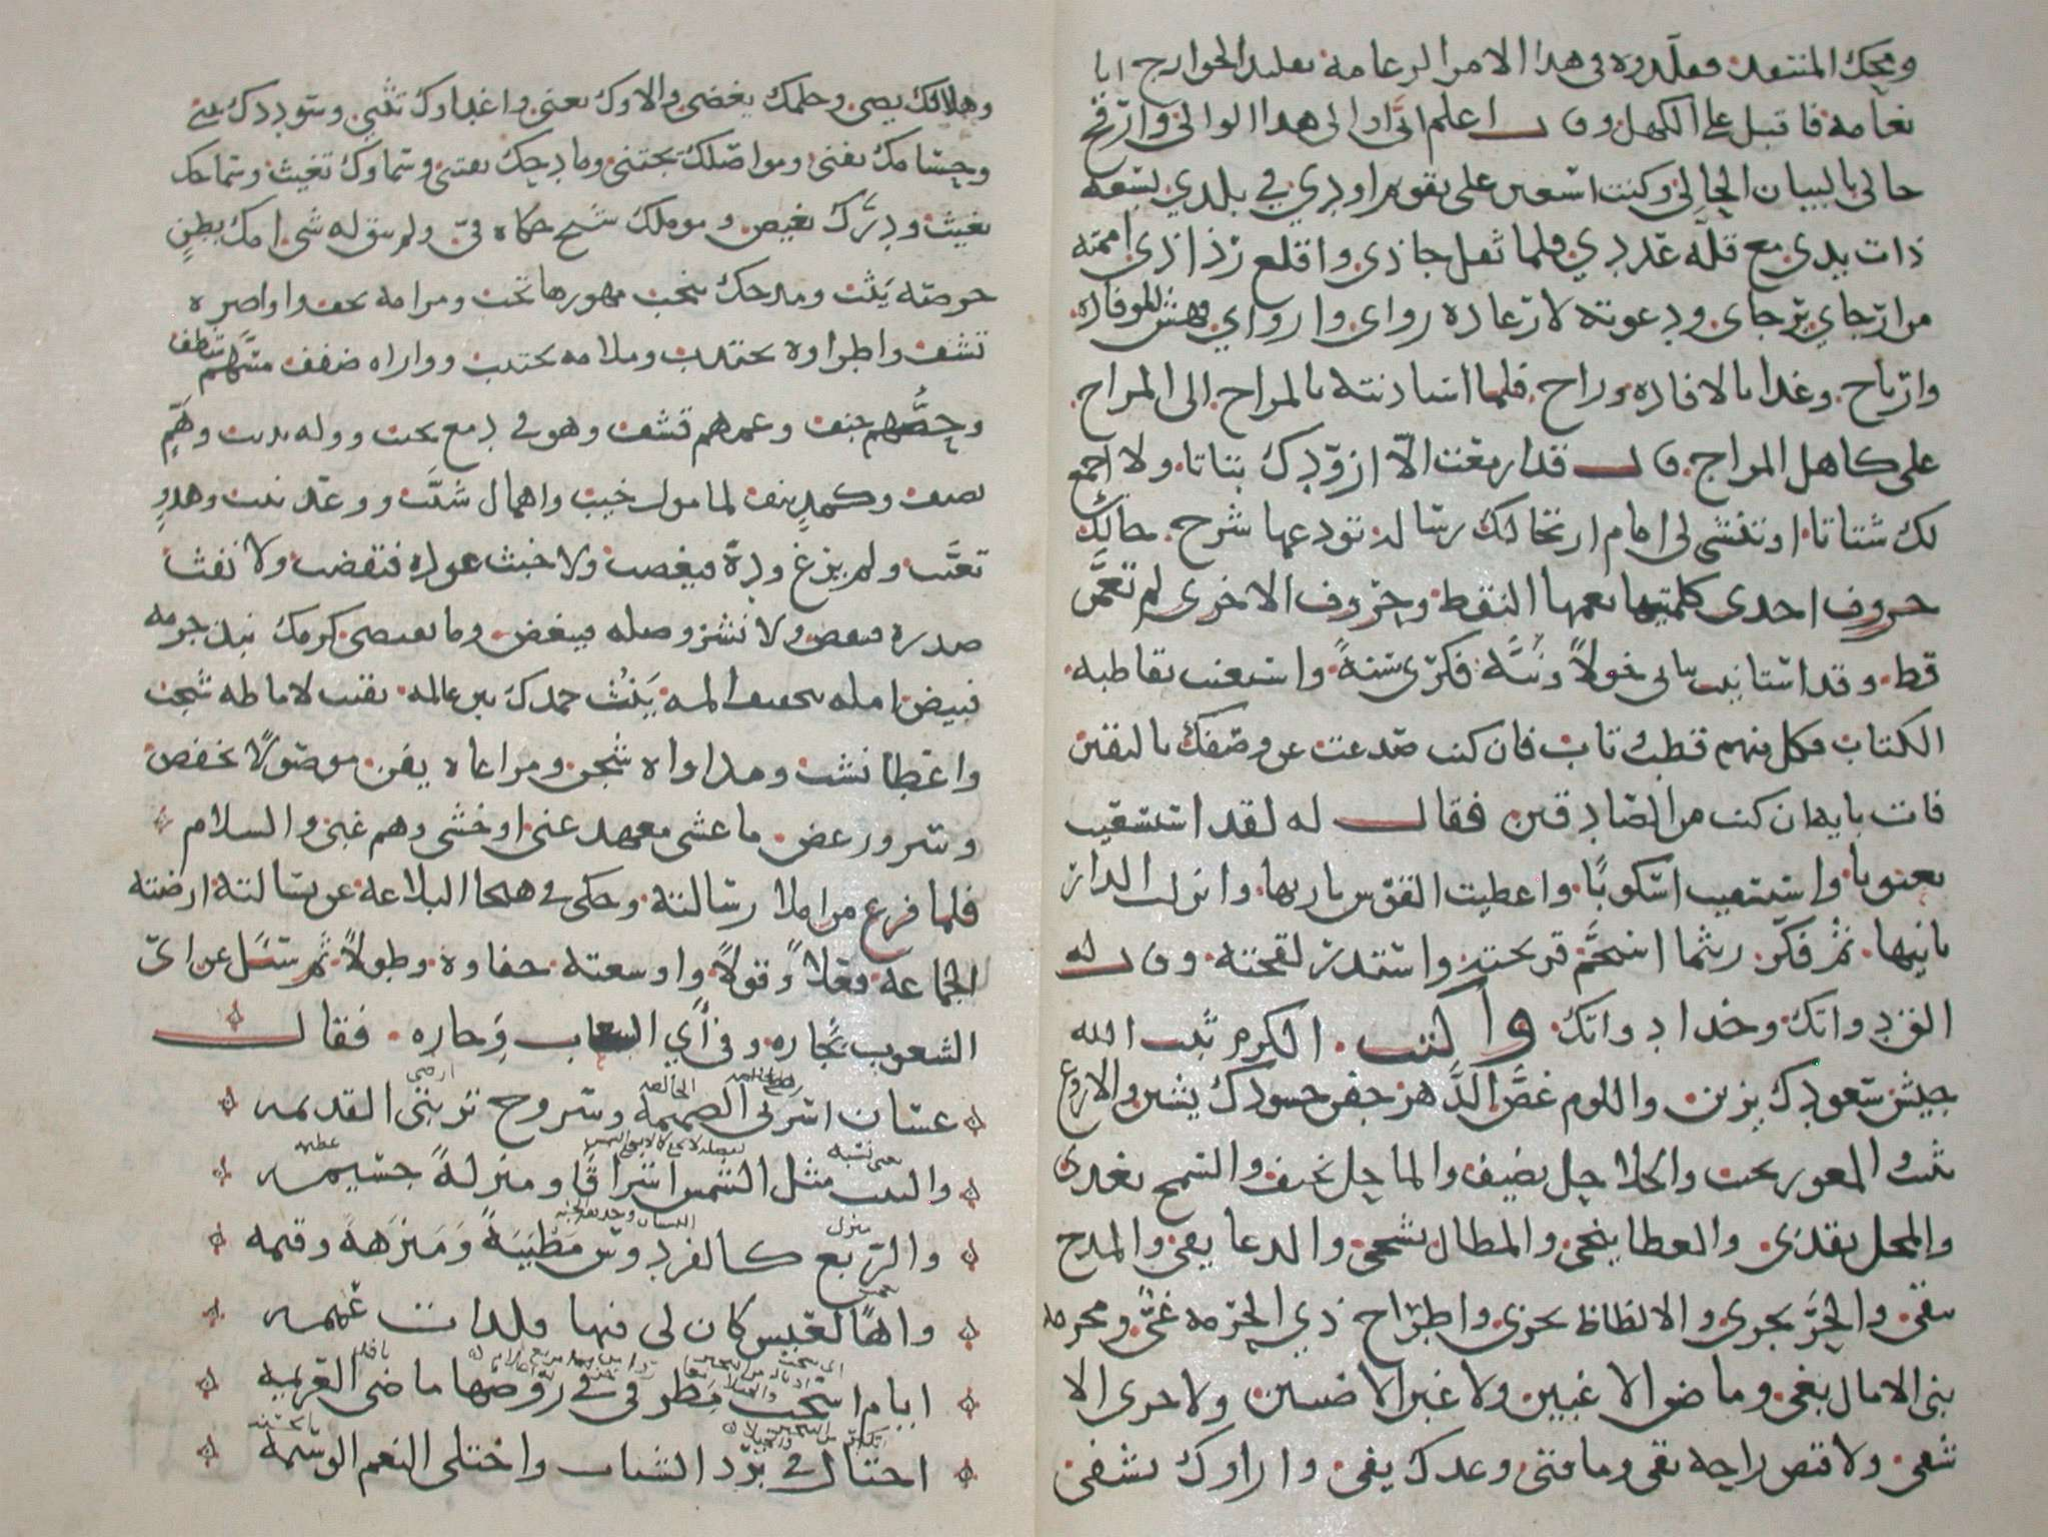 ومحك المنتقد فقلدوه في هذا الامر الزعامه تقليد الخوارج ابا
نعامه فاقبل على الكهل وقال اعلم اني اوالي هذا الوالي وارقح
حالي بالبيان الحالي وكنت استعين على تقويم اودي في بلدي بسعة
ذات يدي مع قلة عددي فلما ثقل حاذي وانفد رذاذي اممته
من ارجاي برجاي ودعوته لاعادة رواي واروائي فهش للوفاده
وارتاح وغدا بالافاده وراح فلما استاذنته بالمراح الى المراح
على كاهل المراح قال قد ازمعت الا ازودك بتاتا ولا اجمع
لك شتاتا او تنشى لي امام ارتحالك رسالة تودعها شرح حالك
حروف احدى كلمتيها يعمها النقط وحروف الاخرى لم تعجم
قط وقد استانيت بياني حولاً ونبهت فكري سنةً واستعنت بقاطبة
الكتاب فكل منهم قطب وتاب فان كنت صدعت عن وصفك باليقين
فات باية ان كنت من الصادقين فقال له لقد استسقيت
يعبوبا واستسقيت اسكوبًا واعطيت القوس باريها وانزلت الدار
بانيها ثم فكر ريثما استجم قريحته واستدر لقحته وقال له
الق دواتك وخذ اداتك واكتب الكرم ثبت الله
جيش سعودك يزين واللوم غض الدهر جفن حسودك يشين والاروع
يثيب والمعور يخيب والحلاحل يضيف والماحل يخيف والسمح يغذي
والمحل يقذي والعطا ينجي والمطال يشجي والدعا يقي والمدح
ينقي والحر يجزي والالطاط يخزي واطراح ذي الحرمة غي ومحرمة
بني الامال بغي وما ضن الا غبين ولا غبن الا ضنين ولا خزن الا
شقي ولا قبض راحه تقي وما فتى وعدك يفي واراوك تشفي
وهلالك يضي وحلمك يغضي والاوك تغني واعداوك تثني وسوددك يبني
وحسامك يفني ومواصلك يجتني ومادحك يقتني وسماوك تغيث وسماحك
يغيث ودرك يفيض وموملك شيخ حكاه في ولم يبق له شي امك بظن
حرصه يثب ومدحك بنخب مهورها تجب ومرامه يخف واواصره
تشف واطراوه يجتذب وملامه يجتنب ووراه ضفف مسهم شظف
وحصهم جنف وعمهم قشف وهو في دمع يجيب ووله يذيب وهم
تضيف وكمد ينيف لمامول خيب واهمال شيب وعدو نيب وهدو
تغيب ولم يزغ وده فيغضب ولا خبث عوده فيقضب ولا نفث
صدره فينفض ولا نشز وصله فيبغض وما يقتضي كرمك نبذ حرمه
فبيض امله بتخفيف المه ينث حمدك بين عالمه بقيت لاماطه شجب
واعطا نشب ومداواه شجن ومراعاه يفن موصولًا بخفض
وسرور غض ما غشي معهد غني او خشي وهم غبي والسلام
فلما فرغ من املا رسالته وحكى في هيجا البلاغه عن بسالته ارضته
الجماعة فعلاً وقولاً واوسعته حفاوة وطولاً ثم سئل عن اي
الشعوب نجاره وفي اي الشعاب وجاره فقال
غسان اسرتي الصميمة وسروج تربتي القديمه
والبيت مثل الشمس اشراقًا ومنزلةً جسيمه
والربع كالفردوس مطيبةً ومنزهةً وقيمه
واهًا لعيش كان لي فيها ولذات عميمه
ايام اسحب مطرفي في روضها ماضي العزيمه
اختال في برد الشباب واجتلي النعم الوسيمة